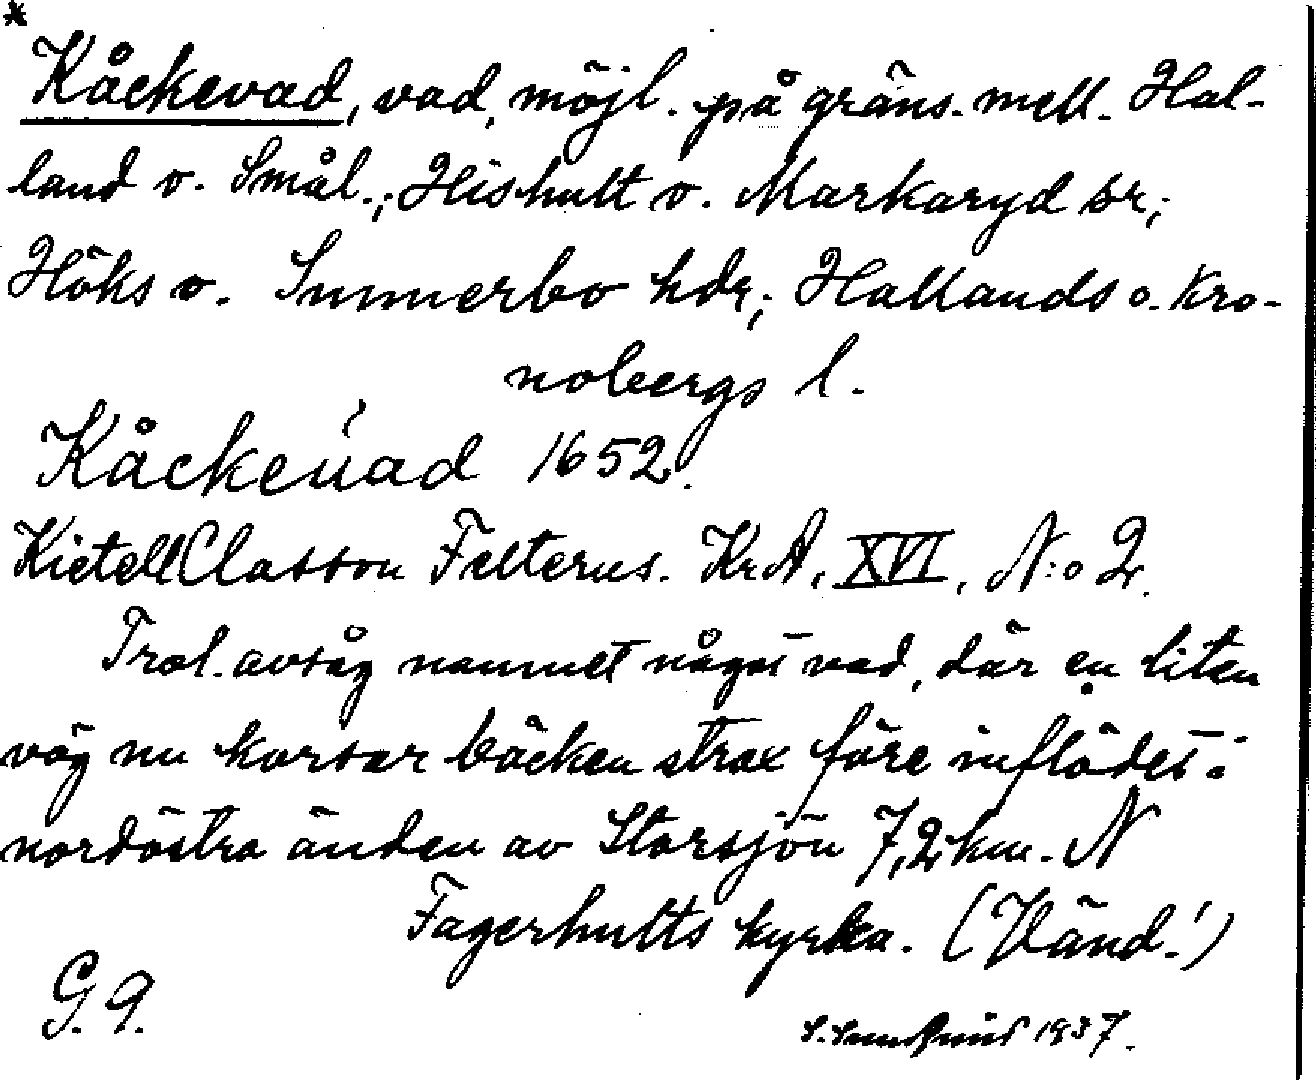 *
Kåckevad, vad, möjl. på gräns. mell. Hal-
land o. Smål.; Hishult o. Markaryd sr;
Höks o. Sunnerbo hdr; Hallands o. Kro-
nobergs l.
Kåckeuad 1652.
Kietell Classon Felterus. KrA, XVI, N:o 2.
Trol. avsåg namnet något vad, där en liten
väg nu korsar bäcken strax före inflödet i
nordöstra änden av Storsjön 7,2 km. N
Fagerhults kyrka. (Vänd!)
G. 9.
1937.